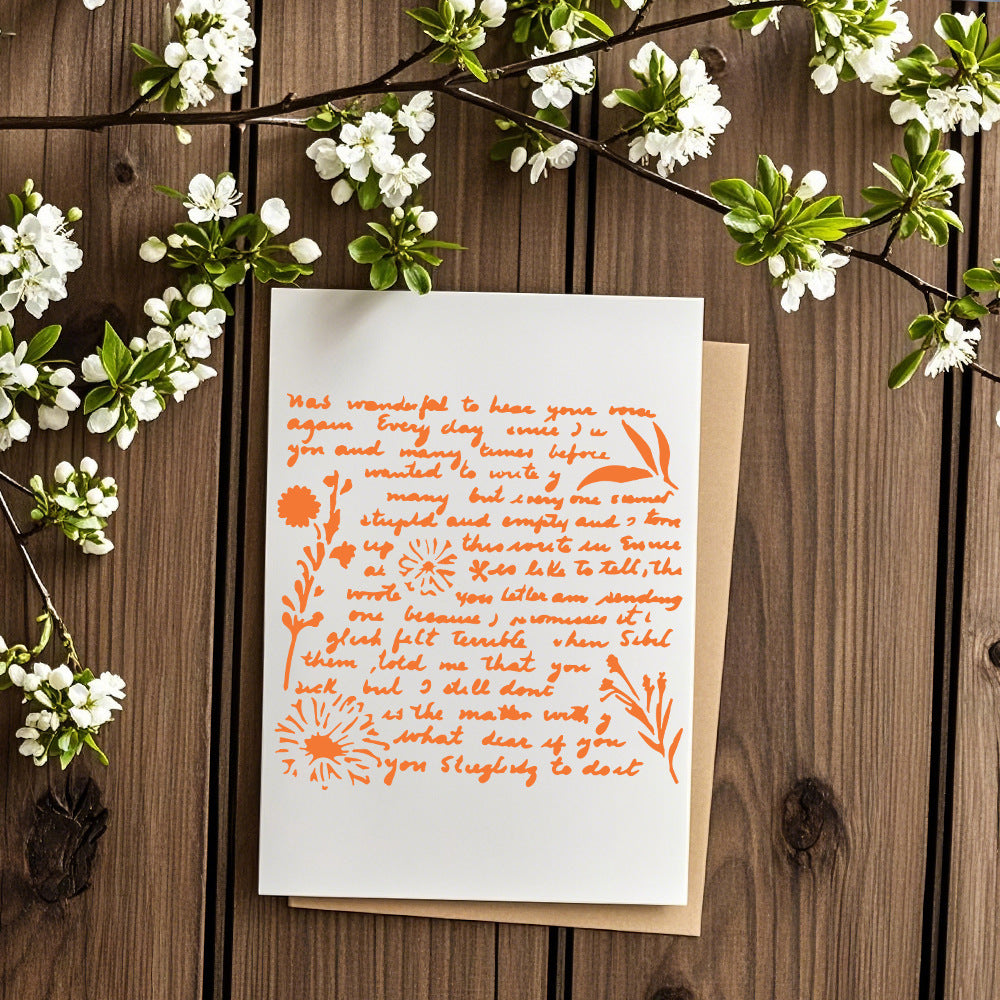 was wonderful to hear your voice
again Every day since I
you and many times before
wanted to write y
many but every one seemed
stupid and empty and I tore
up this wrote in
at like to tell, the
wrote you letter am sending
one because I promisses it
felt terrible when Sibel
them, told me that you
sick but I still dont
is the matter with y
what dear if you
you to do it